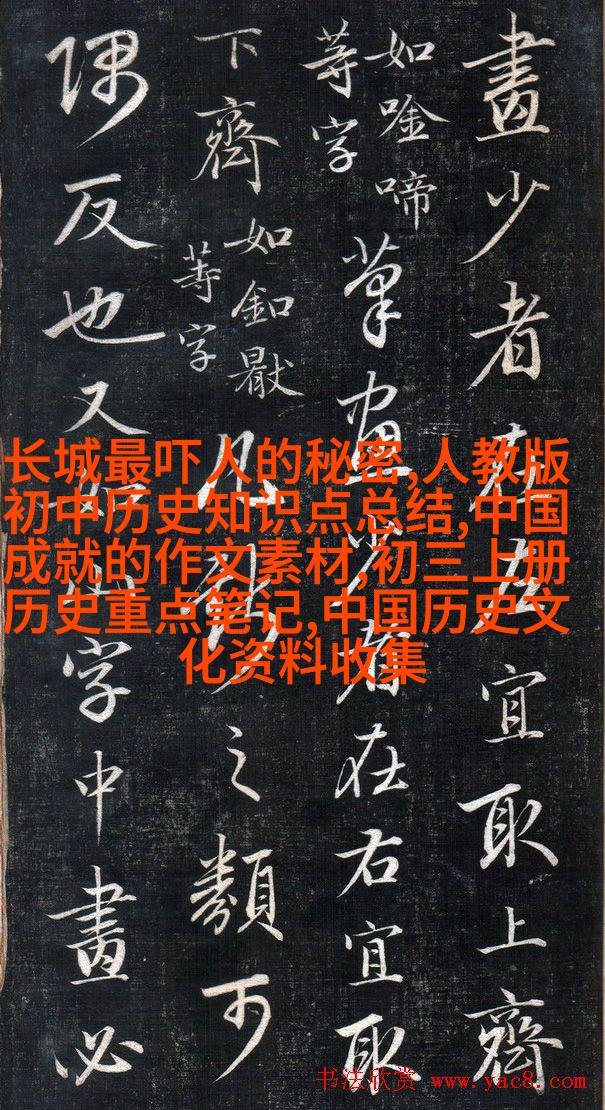 畫少者在左宜取上齊
如唫啼
等字
筆畫少者在右宜取
下齊
如釦
等字
之類可
隅反也又如山字中畫必
长城最吓人的秘密,人教版
初中历史知识点总结,中国
成就的作文素材,初三上册
历史重点笔记,中国历史文
化资料收集
书法欣赏 www.yac8.com